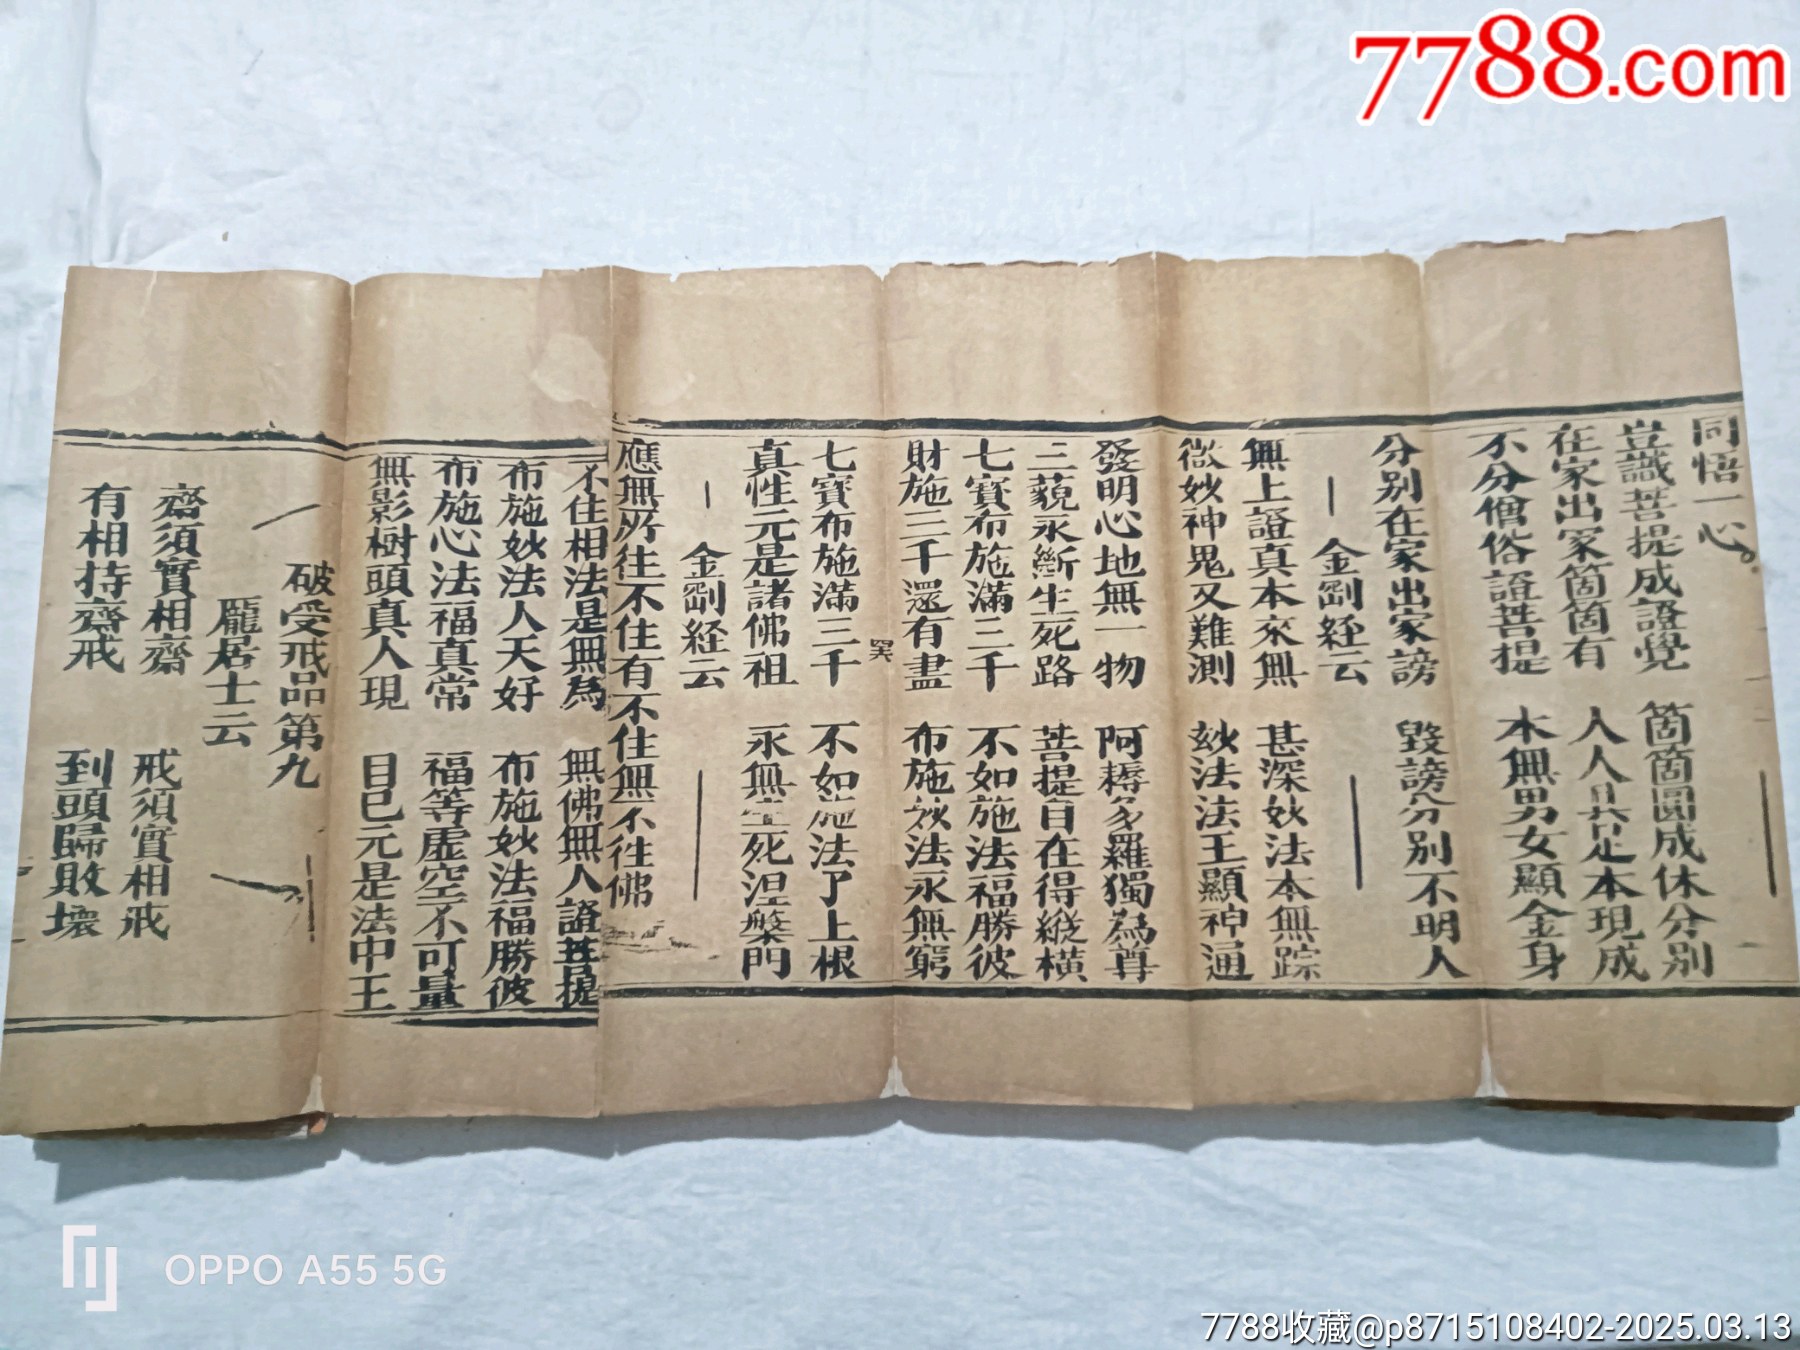 7788.com
同悟一心
豈識菩提成證覺 箇箇圓成休分別
在家出家箇箇有 人人具足本現成
不分僧俗證菩提 本無男女顯金身
分別在家出家謗 毀謗分別不明人
金剛経云
無上證真本來無 甚深妙法本無踪
微妙神鬼又難測 妙法法王顯神通
發明心地無一物 阿耨多羅獨為尊
三藐永斷生死路 菩提自在得縱橫
七寳布施滿三千 不如施法福勝彼
財施三千還有盡 布施妙法永無窮
七寳布施滿三千 不如施法了上根
真性元是諸佛祖 永無生死涅槃門
金剛経云
應無所住不住有不住無不住佛
不住相法是無為 無佛無人證菩提
布施妙法人天好 布施妙法福勝彼
布施心法福真常 福等虛空不可量
無影樹頭真人現 目巳元是法中王
破受戒品第九
龐居士云
齋須實相齋 戒須實相戒
有相持齋戒 到頭歸敗壞
OPPO A55 5G
7788收藏@p8715108402-2025.03.13